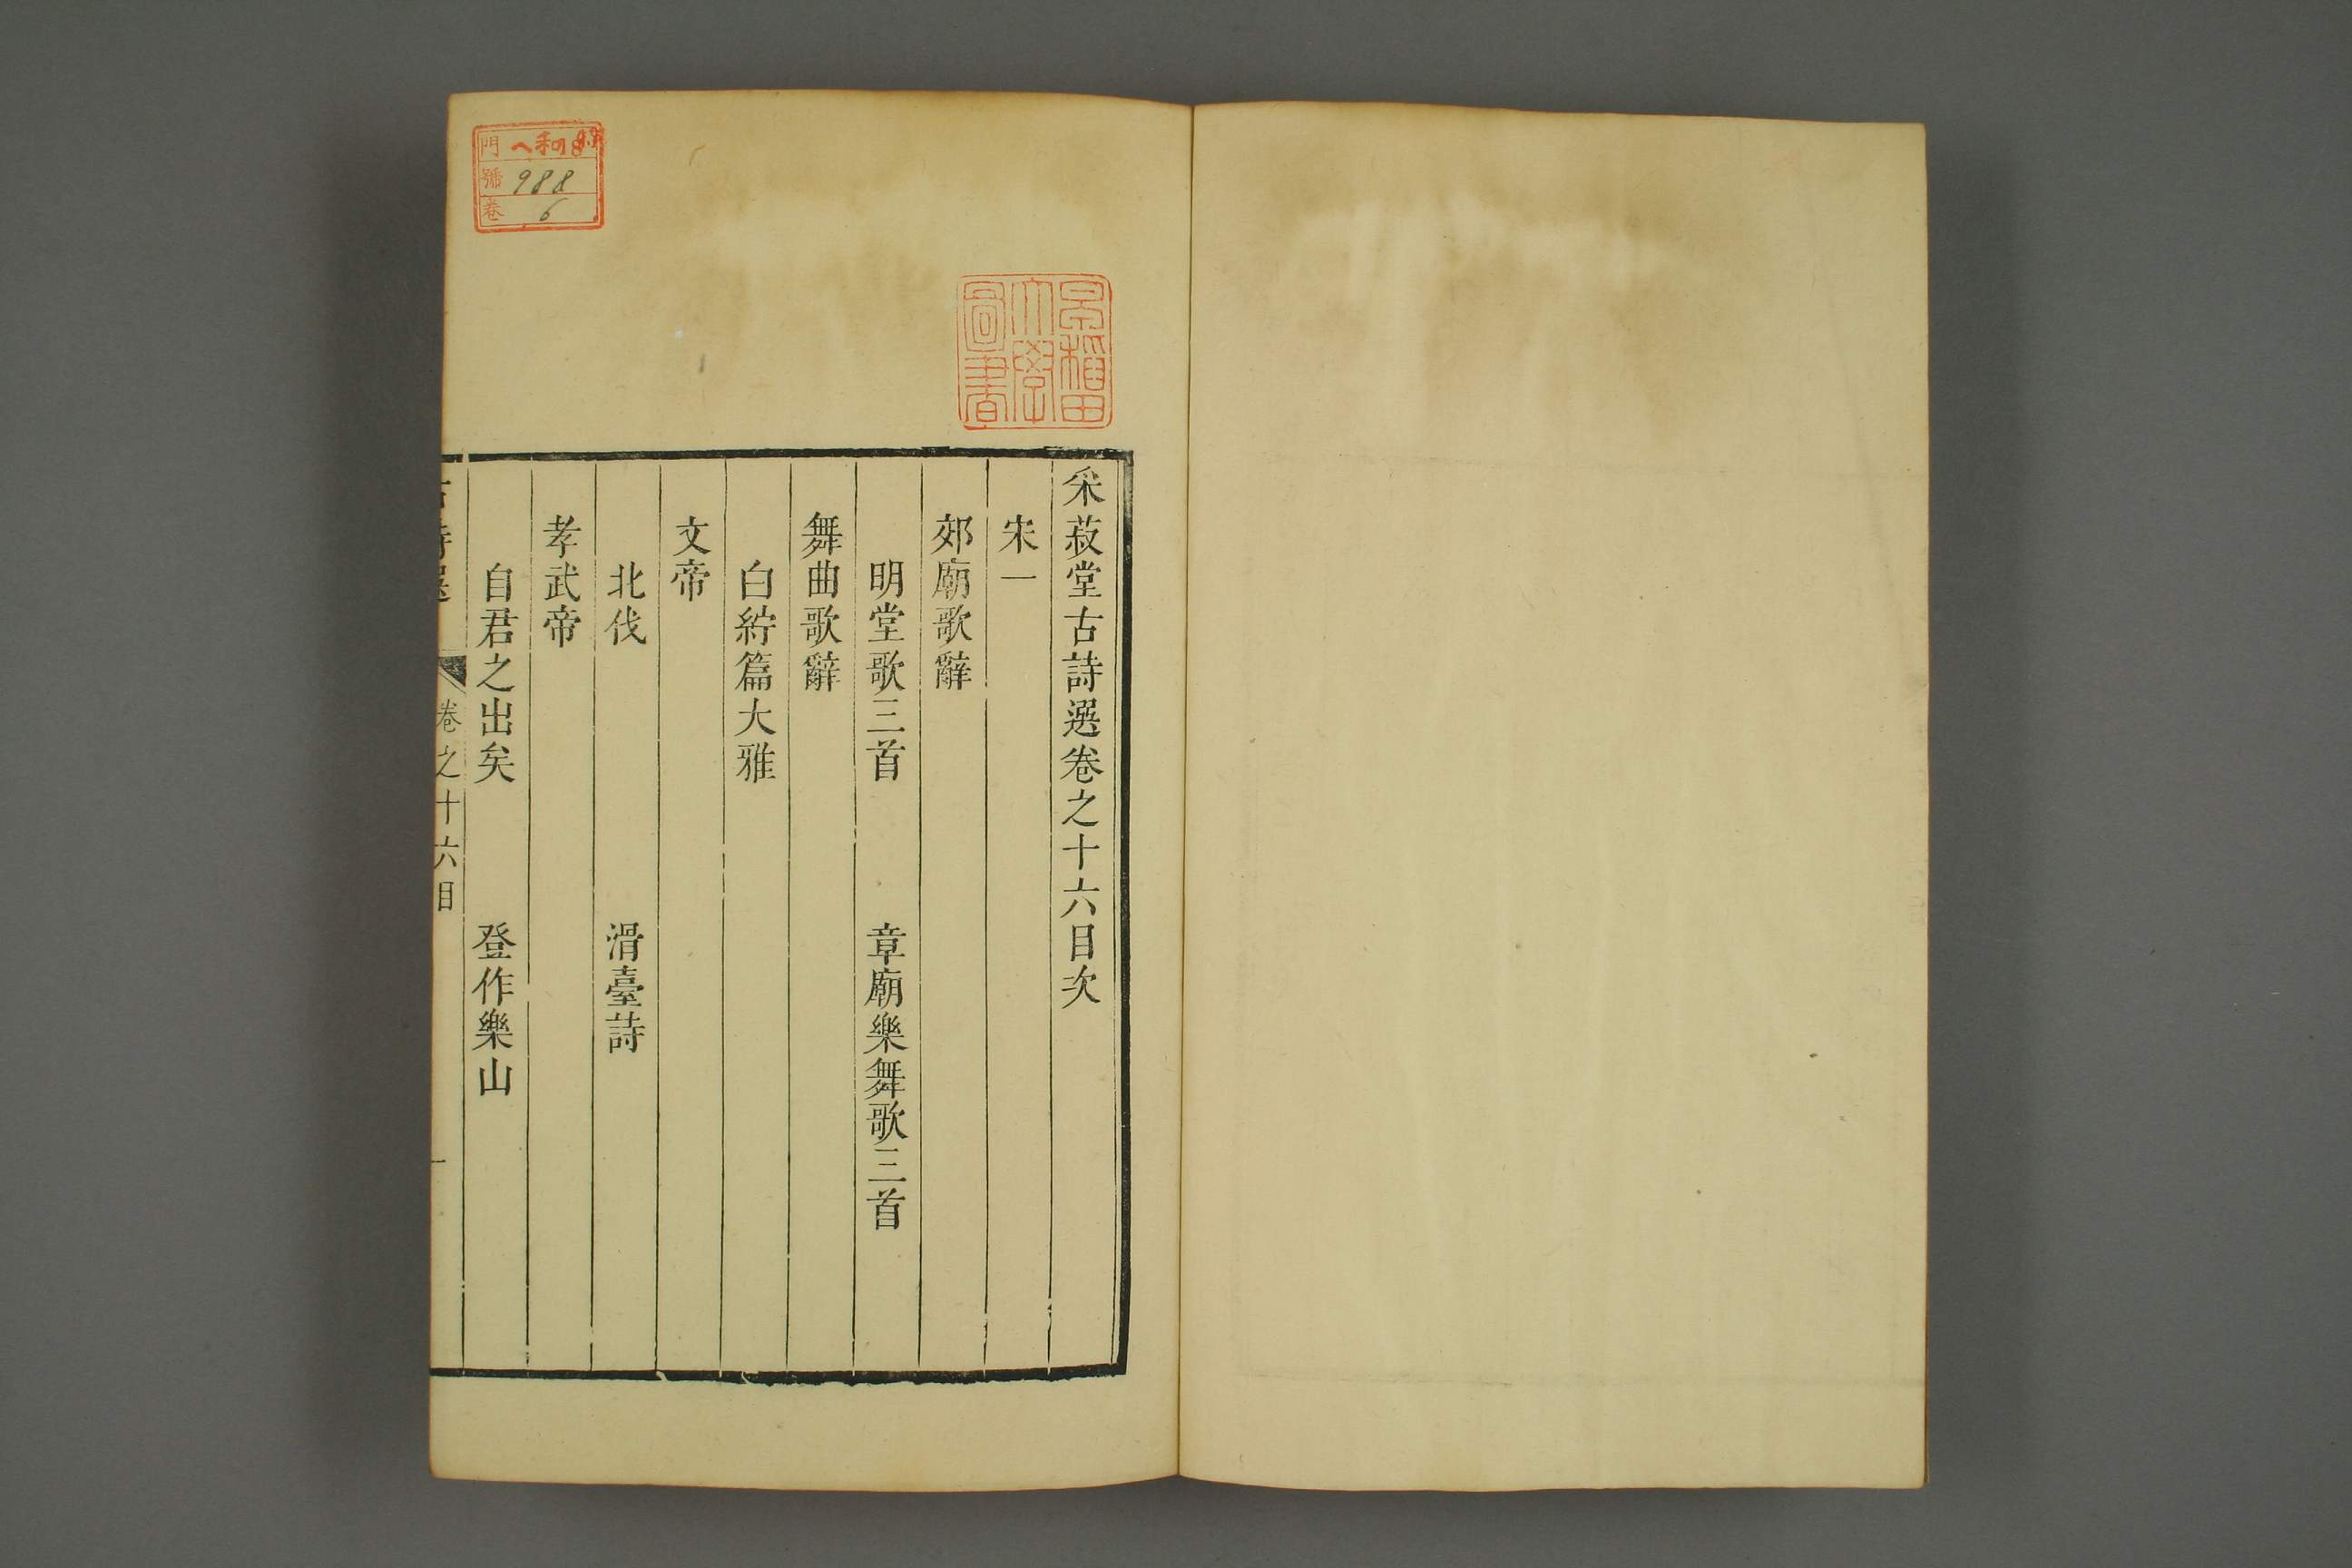 采菽堂古詩選卷之十六目次
宋一
郊廟歌辭
明堂歌三首 章廟樂舞歌三首
舞曲歌辭
白紵篇大雅
文帝
北伐 滑臺詩
孝武帝
自君之出矣 登作樂山
古詩選 卷之十六目 一
早稻田
大學
圖書
門
號 988
卷 6